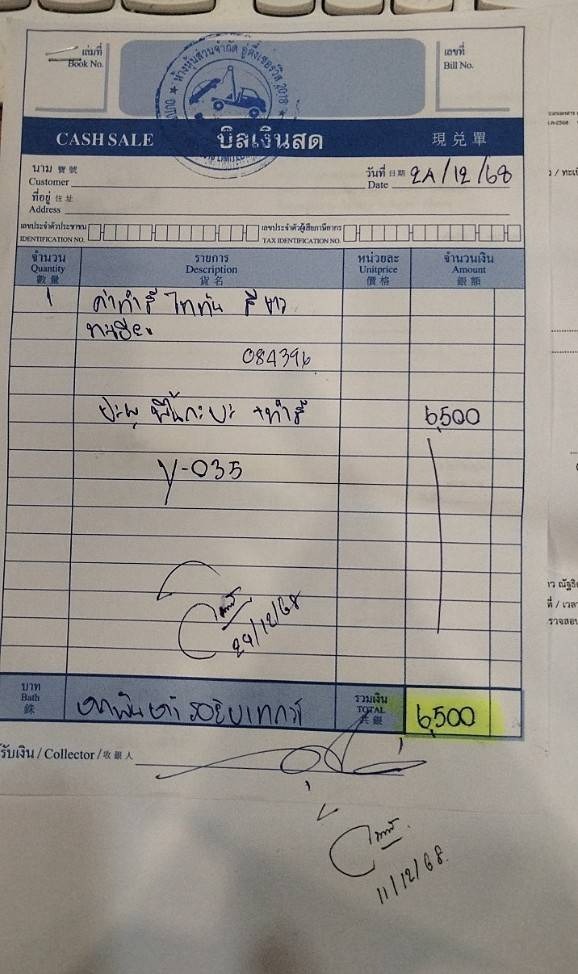 เล่มที่
Book No.
เลขที่
Bill No.
ห้างหุ้นส่วนจำกัด 2018
CASH SALE บิลเงินสด 現兌單
นาม 寶號
Customer
วันที่ 日期
Date 24/12/68
ที่อยู่ 住址
Address
เลขประจำตัวประชาชน
IDENTIFICATION NO.
เลขประจำตัวผู้เสียภาษีอากร
TAX IDENTIFICATION NO.
จำนวน รายการ หน่วยละ จำนวนเงิน
Quantity Description Unitprice Amount
數量 貨名 價格 銀額
1 ค่าทำสี ไททัน สีขาว
084396
ปะผุ พื้นกะบะ +ทำสี 6,500
Y-035
24/12/68
บาท
Bath
銖
รวมเงิน
TOTAL
共銀
6,500
รับเงิน / Collector / 收銀人
11/12/68